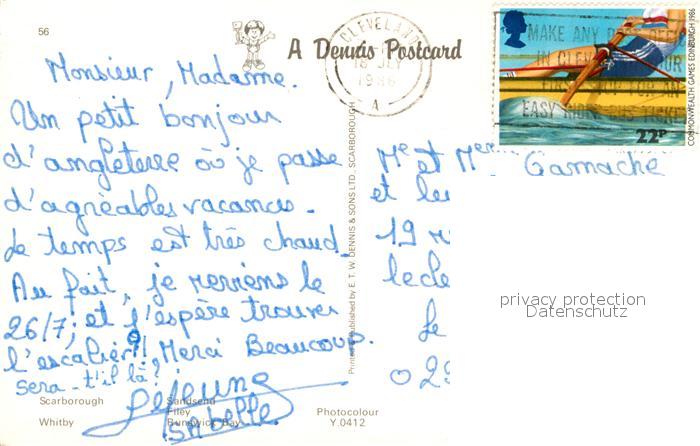 56
A Dennis Postcard
CLEVELAND
1986
A
MAKE ANY
IN CLEV
EASY RIDER BUS
COMMONWEALTH GAMES EDINBURGH 1986
22P
Monsieur, Madame.
Un petit bonjour
d'angleterre où je passe
d'agréables vacances.
Le temps est très chaud.
Au fait, je reviens le
26/7; et j'espère trouver
l'escalier!! Merci Beaucoup.
Sera-t'il là?
Lejeune
Isabelle
Me et Mme Gamache
et les
19
lecle
Le
029
Printed & Published by E. T. W. DENNIS & SONS LTD., SCARBOROUGH
privacy protection
Datenschutz
Scarborough Sandsend
Filey
Whitby Runswick Bay
Photocolour
Y.0412